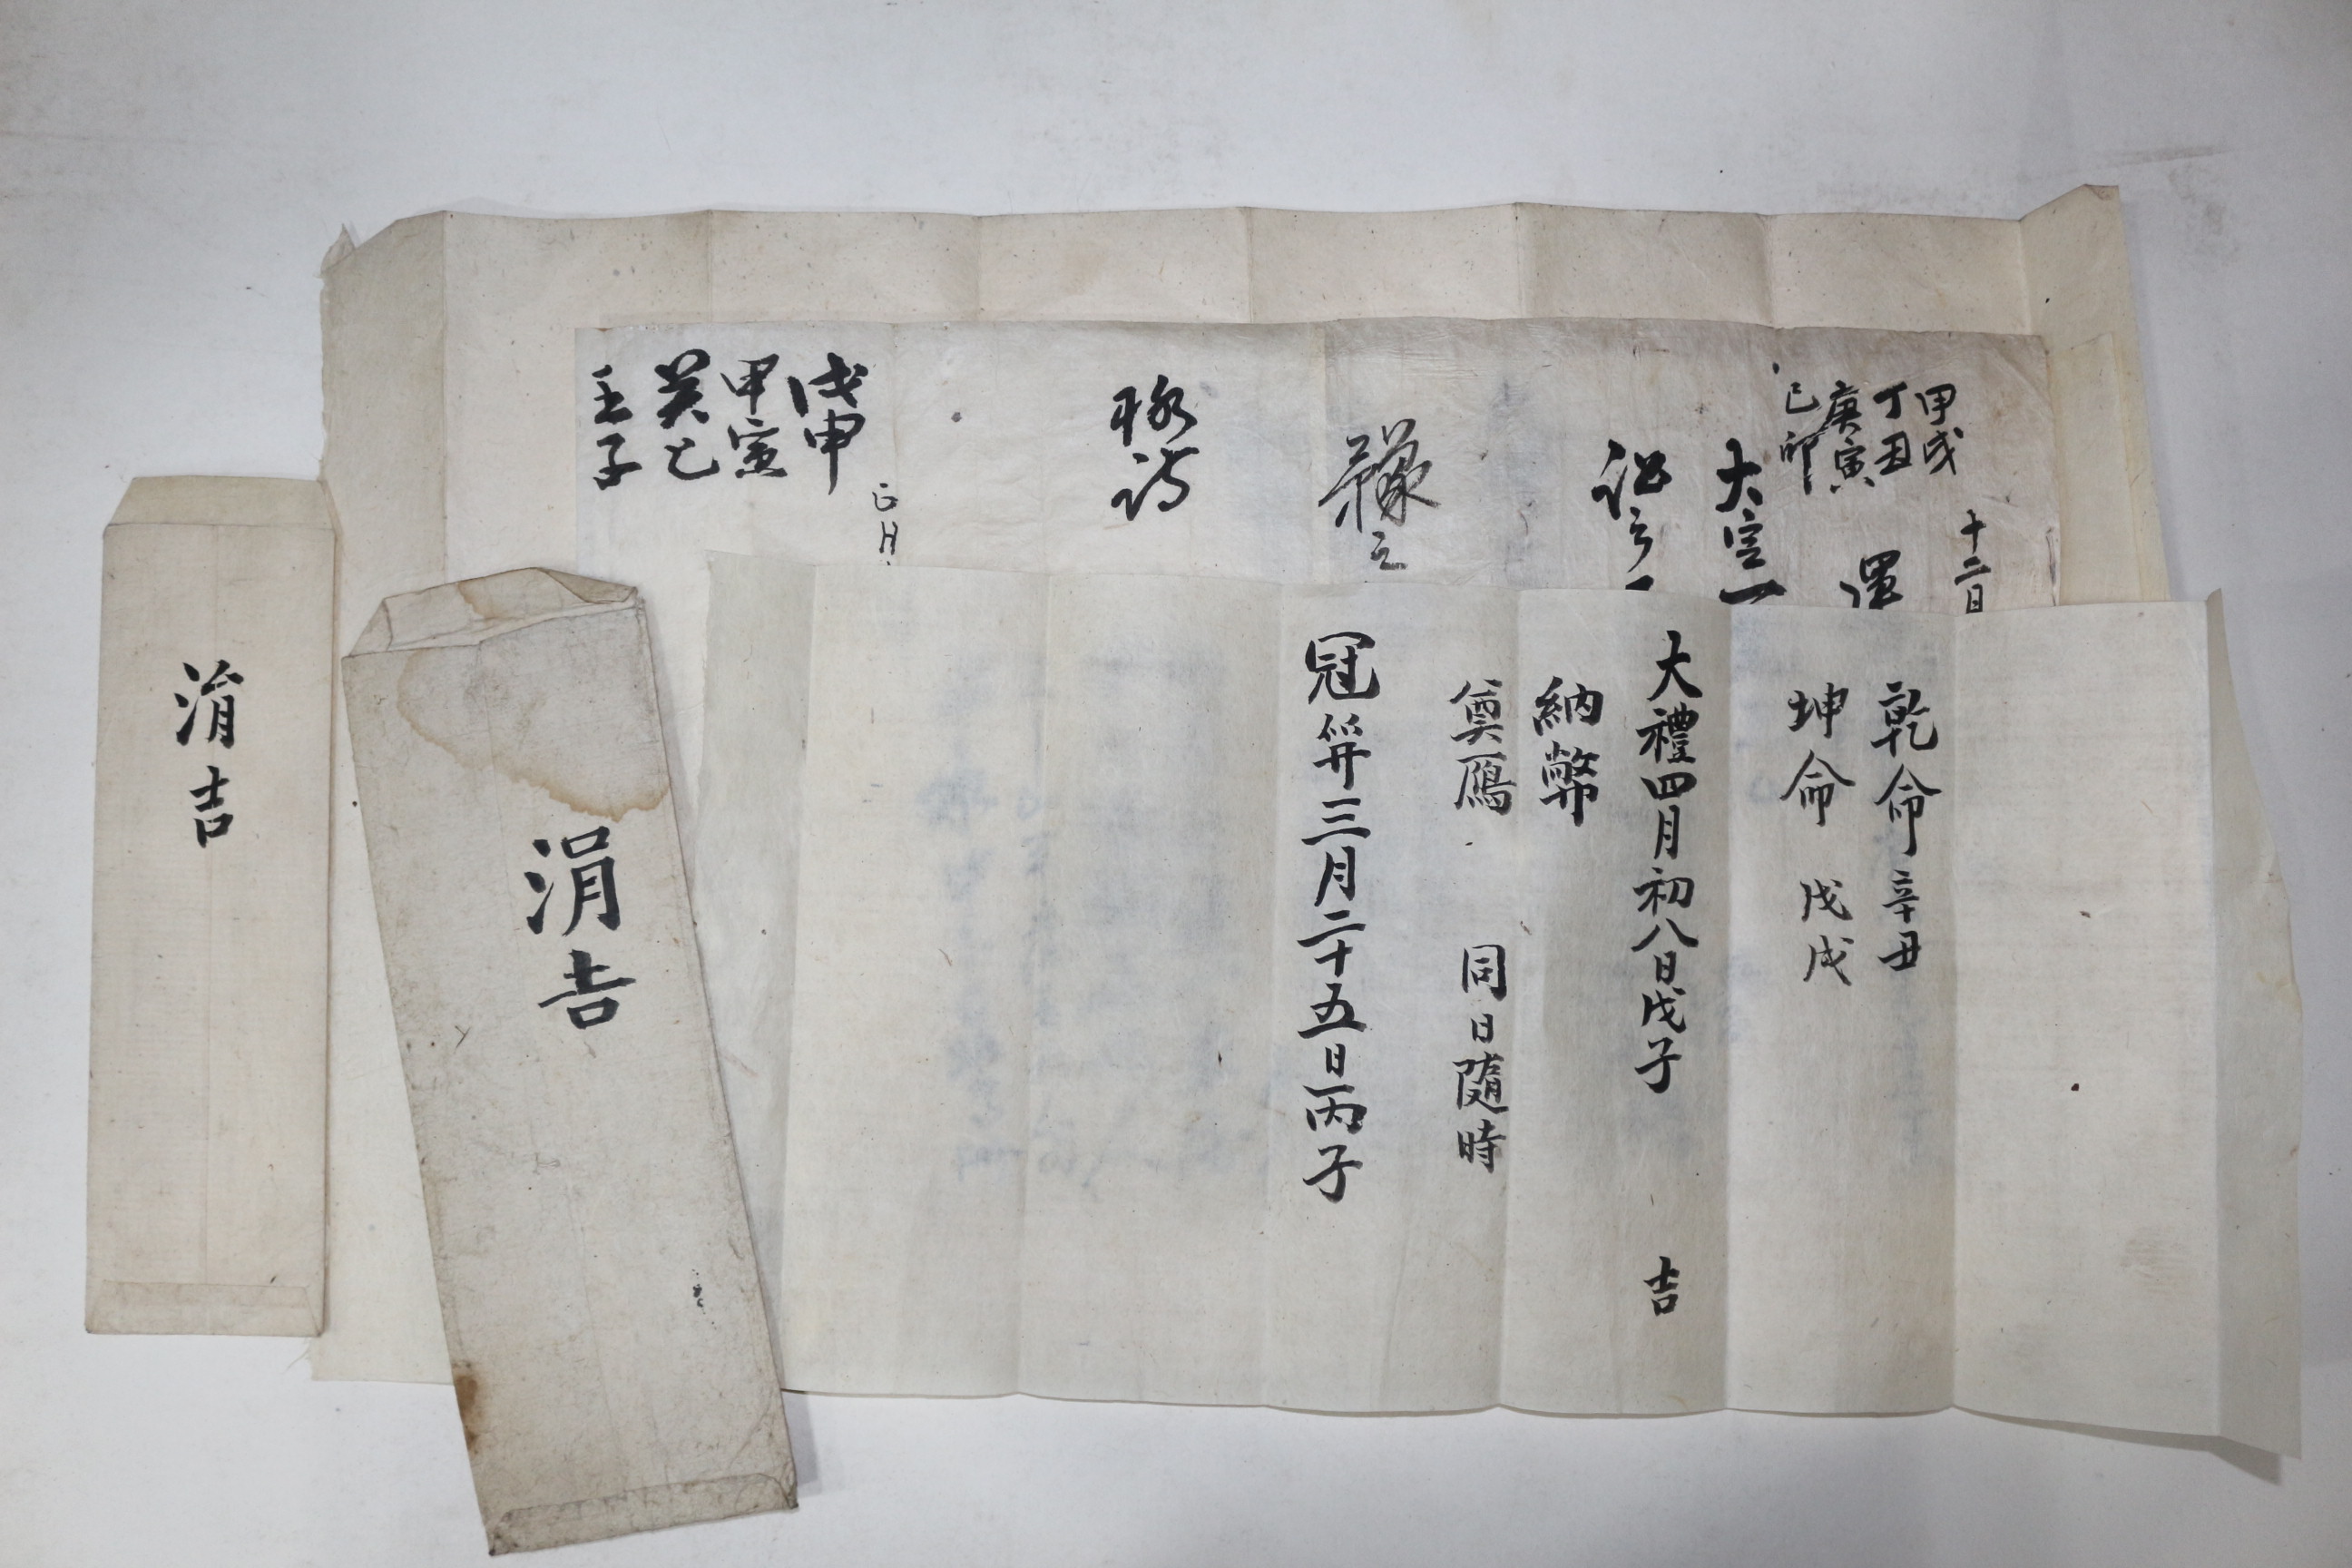 乾命辛丑
坤命戊戌
大禮四月初八日戊子 吉
納幣
奠鴈 同日隨時
冠筓三月二十五日丙子
涓吉
涓吉
十二日
甲戌
丁丑
庚寅
己卯
戊申
甲寅
癸巳
壬子